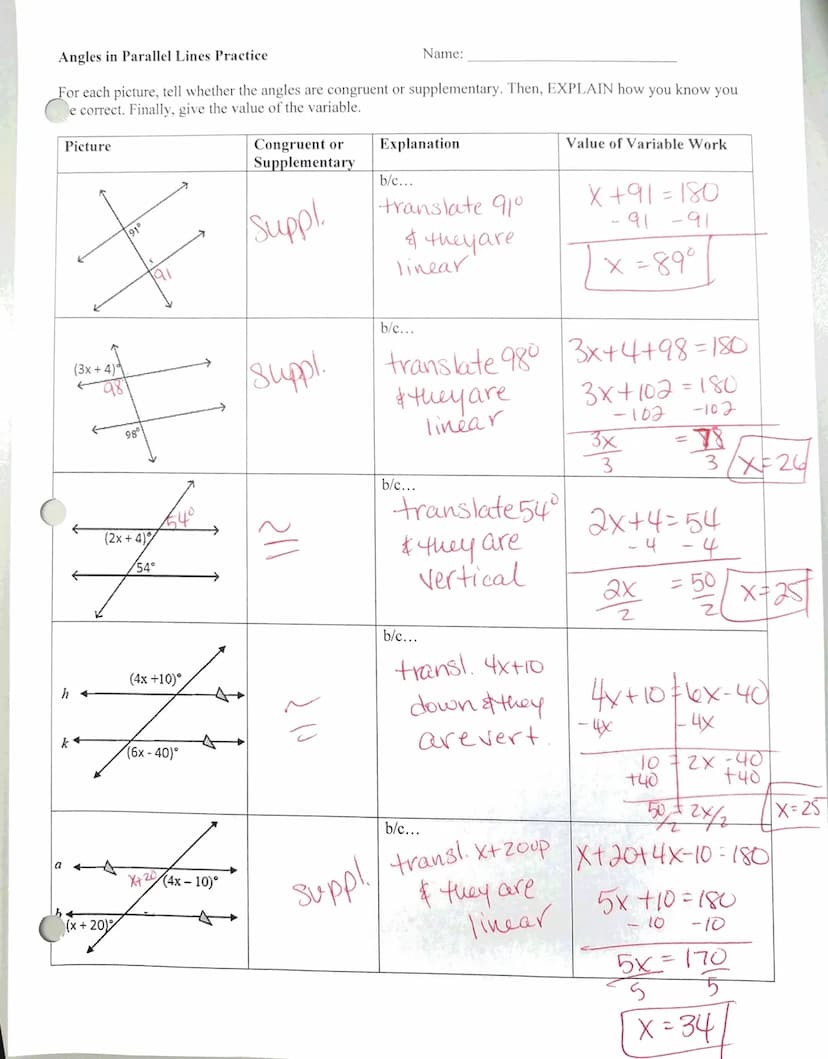 Angles in Parallel Lines Practice
Name:
For each picture, tell whether the angles are congruent or supplementary. Then, EXPLAIN how you know you
e correct. Finally, give the value of the variable.
Picture
Congruent or
Supplementary
Explanation
Value of Variable Work
91°
91
Suppl.
b/c...
translate 91°
& they are
linear
x + 91 = 180
- 91 - 91
x = 89°
(3x + 4)°
98
98°
Suppl.
b/c...
translate 98°
& they are
linear
3x+4+98 = 180
3x+102 = 180
-102 -102
3x = 78
3 3
x = 26
54°
(2x + 4)°
54°
≅
b/c...
translate 54°
& they are
vertical
2x+4 = 54
- 4 - 4
2x = 50
2 2
x = 25
(4x +10)°
h
k
(6x - 40)°
≅
b/c...
transl. 4x+10
down & they
are vert.
4x+10 = 6x-40
-4x -4x
10 = 2x -40
+40 +40
50/2 = 2x/2
x = 25
a
x+20
(4x – 10)°
b
(x + 20)°
suppl.
b/c...
transl. x+20 up
& they are
linear
x+20+4x-10 = 180
5x +10 = 180
- 10 -10
5x = 170
5 5
x = 34